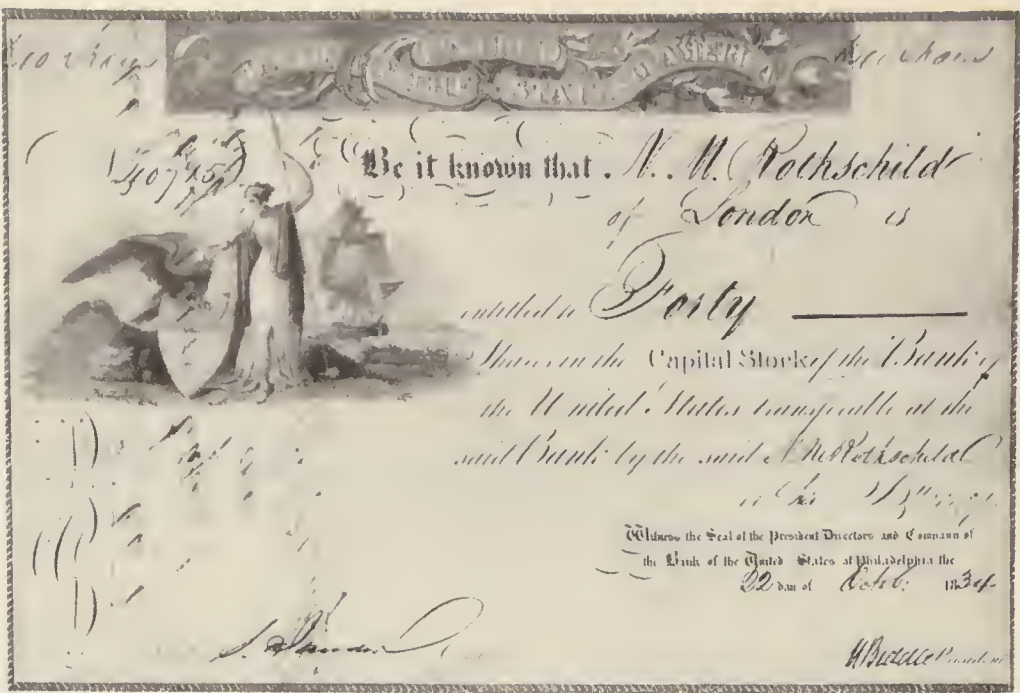 Be it known that N. M. Rothschild
of London is
entitled to Forty
Shares in the Capital Stock of the Bank of
the United States transferable at the
said Bank by the said N M Rothschild
or his
Witness the Seal of the President Directors and Company of
the Bank of the United States at Philadelphia the
22 day of Octob: 1834
N Biddle President